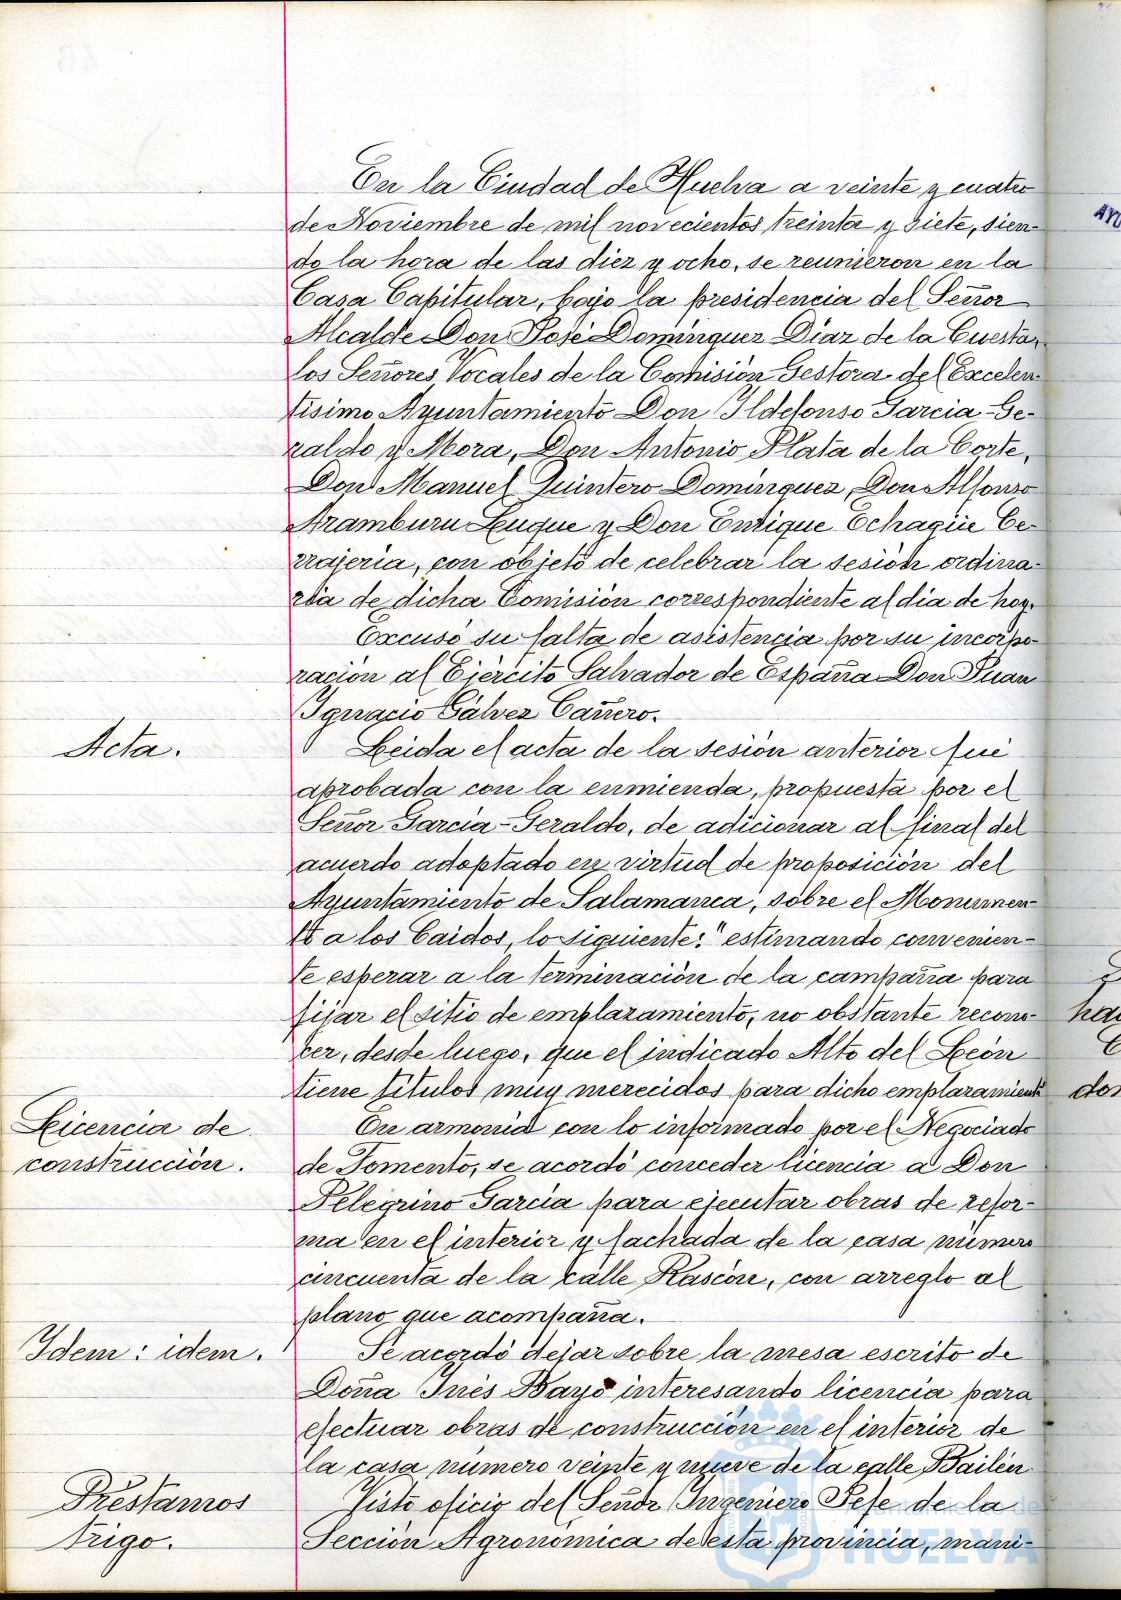 En la Ciudad de Huelva a veinte y cuatro
de Noviembre de mil novecientos treinta y siete, sien-
do la hora de las diez y ocho, se reunieron en la
Casa Capitular, bajo la presidencia del Señor
Alcalde Don José Domínguez Díaz de la Cuesta,
los Señores Vocales de la Comisión Gestora del Excelen-
tísimo Ayuntamiento Don Ildefonso García-Ge-
raldo y Mora, Don Antonio Plata de la Corte,
Don Manuel Quintero Domínguez, Don Alfonso
Aramburu Luque y Don Enrique Echagüe Ce-
rrajería, con objeto de celebrar la sesión ordina-
ria de dicha Comisión correspondiente al dia de hoy.
Excusó su falta de asistencia por su incorpo-
ración al Ejército Salvador de España Don Juan
Ignacio Gálvez Cañero.
Acta.
Leida el acta de la sesión anterior fué
aprobada con la enmienda, propuesta por el
Señor García-Geraldo, de adicionar al final del
acuerdo adoptado en virtud de proposición del
Ayuntamiento de Salamanca, sobre el Monumen-
to a los Caidos, lo siguiente: "estimando convenien-
te esperar a la terminación de la campaña para
fijar el sitio de emplazamiento, no obstante recono-
cer, desde luego, que el indicado Alto del León
tiene títulos muy merecidos para dicho emplazamiento
Licencia de
construcción.
En armonia con lo informado por el Negociado
de Fomento, se acordó conceder licencia a Don
Pelegrino García para ejecutar obras de refor-
ma en el interior y fachada de la casa número
cincuenta de la calle Rascón, con arreglo al
plano que acompaña.
Idem: idem.
Se acordó dejar sobre la mesa escrito de
Doña Inés Bayo interesando licencia para
efectuar obras de construcción en el interior de
la casa número veinte y nueve de la calle Bailén
Préstamos
trigo.
Visto oficio del Señor Ingeniero Jefe de la
Sección Agronómica de esta provincia, mani-
Ayuntamiento de
HUELVA